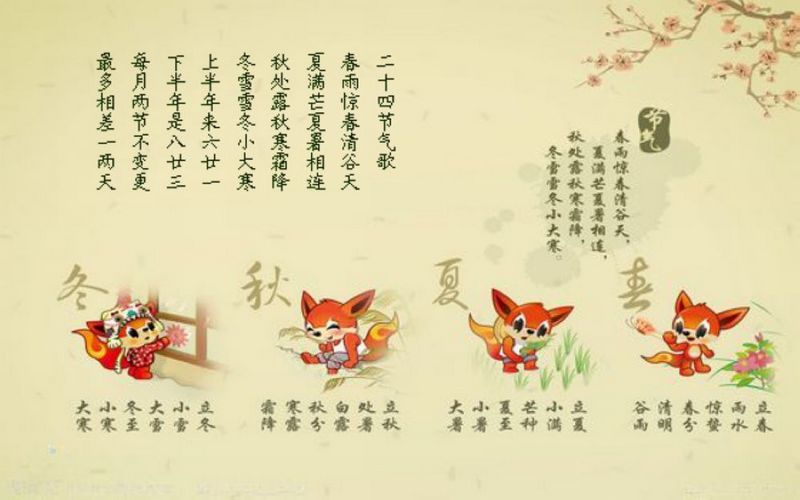 二十四节气歌
春雨惊春清谷天
夏满芒夏暑相连
秋处露秋寒霜降
冬雪雪冬小大寒
上半年来六廿一
下半年是八廿三
每月两节不变更
最多相差一两天
节气
春雨惊春清谷天，
夏满芒夏暑相连，
秋处露秋寒霜降，
冬雪雪冬小大寒。
春
立春
雨水
惊蛰
春分
清明
谷雨
夏
立夏
小满
芒种
夏至
小暑
大暑
秋
立秋
处暑
白露
秋分
寒露
霜降
冬
立冬
小雪
大雪
冬至
小寒
大寒